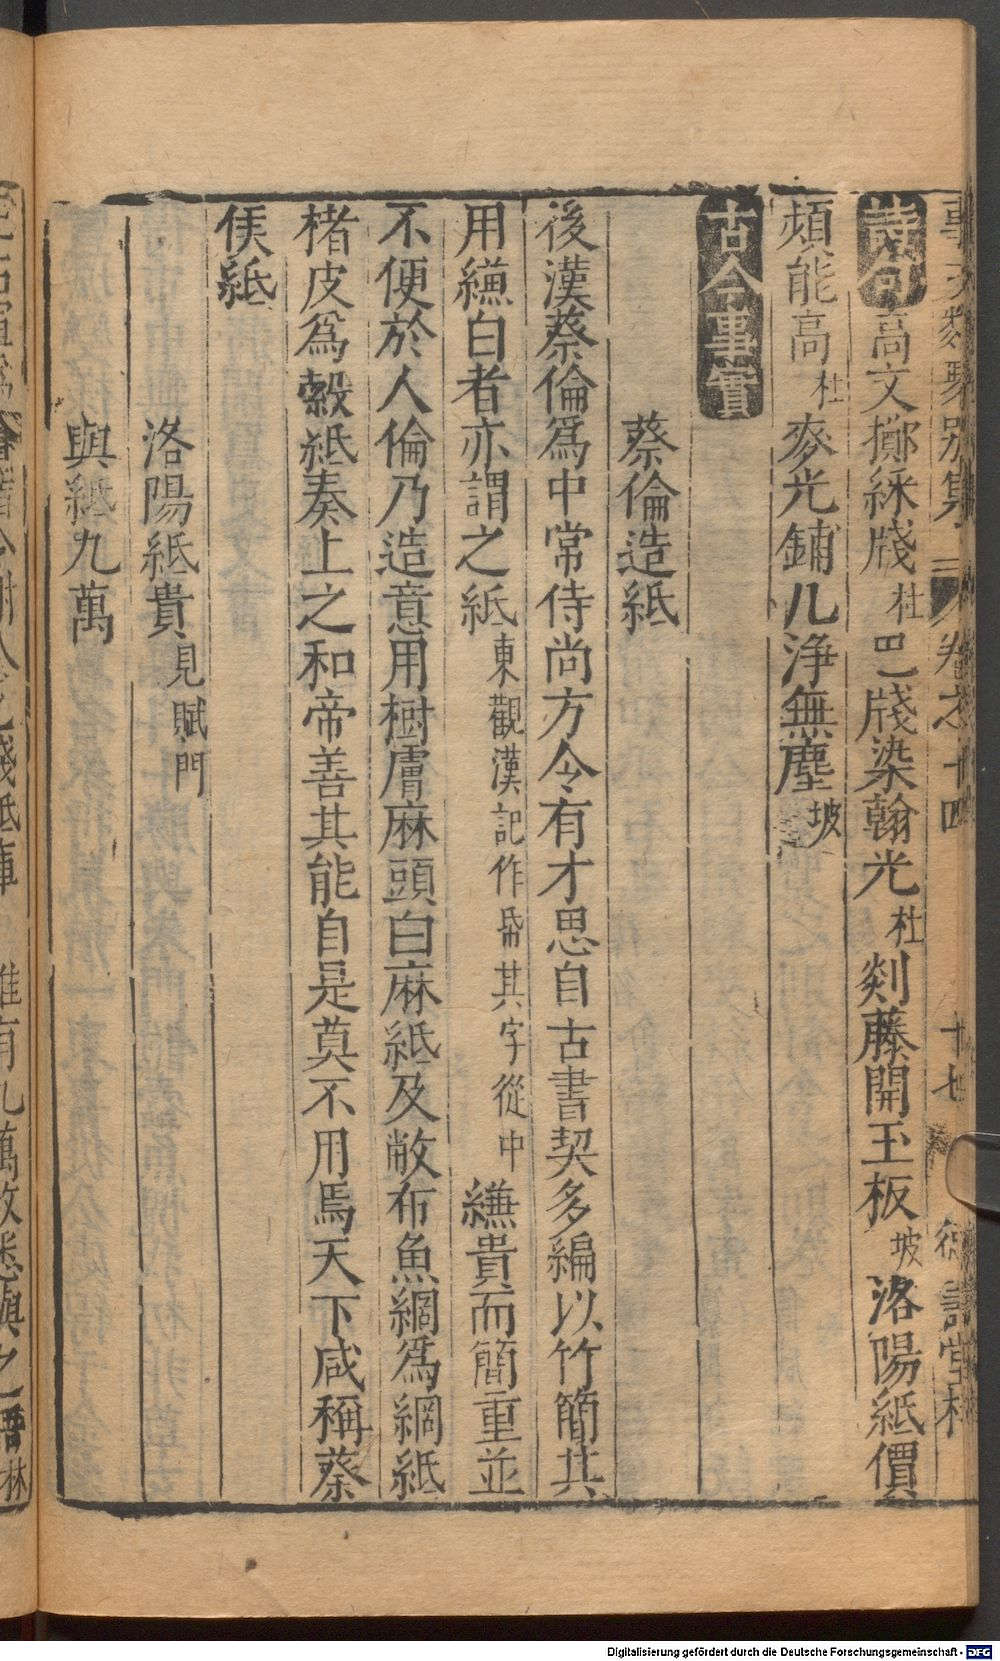 事文類聚別集 卷之十四 十七 德壽堂梓
詩句 高文擲綵牋杜 巴牋染翰光杜 剡藤開玉板坡 洛陽紙價
頻能高杜 麥光鋪几淨無塵坡
古今事實
蔡倫造紙
後漢蔡倫爲中常侍尚方令有才思自古書契多編以竹簡其
用縑白者亦謂之紙東觀漢記作帋其字從巾縑貴而簡重並
不便於人倫乃造意用樹膚麻頭白麻紙及敝布魚網爲網紙
楮皮爲榖紙奏上之和帝善其能自是莫不用焉天下咸稱蔡
侯紙
洛陽紙貴見賦門
與紙九萬
謝公
牋紙庫 唯有九萬枚悉與之語林
Digitalisierung gefördert durch die Deutsche Forschungsgemeinschaft - DFG